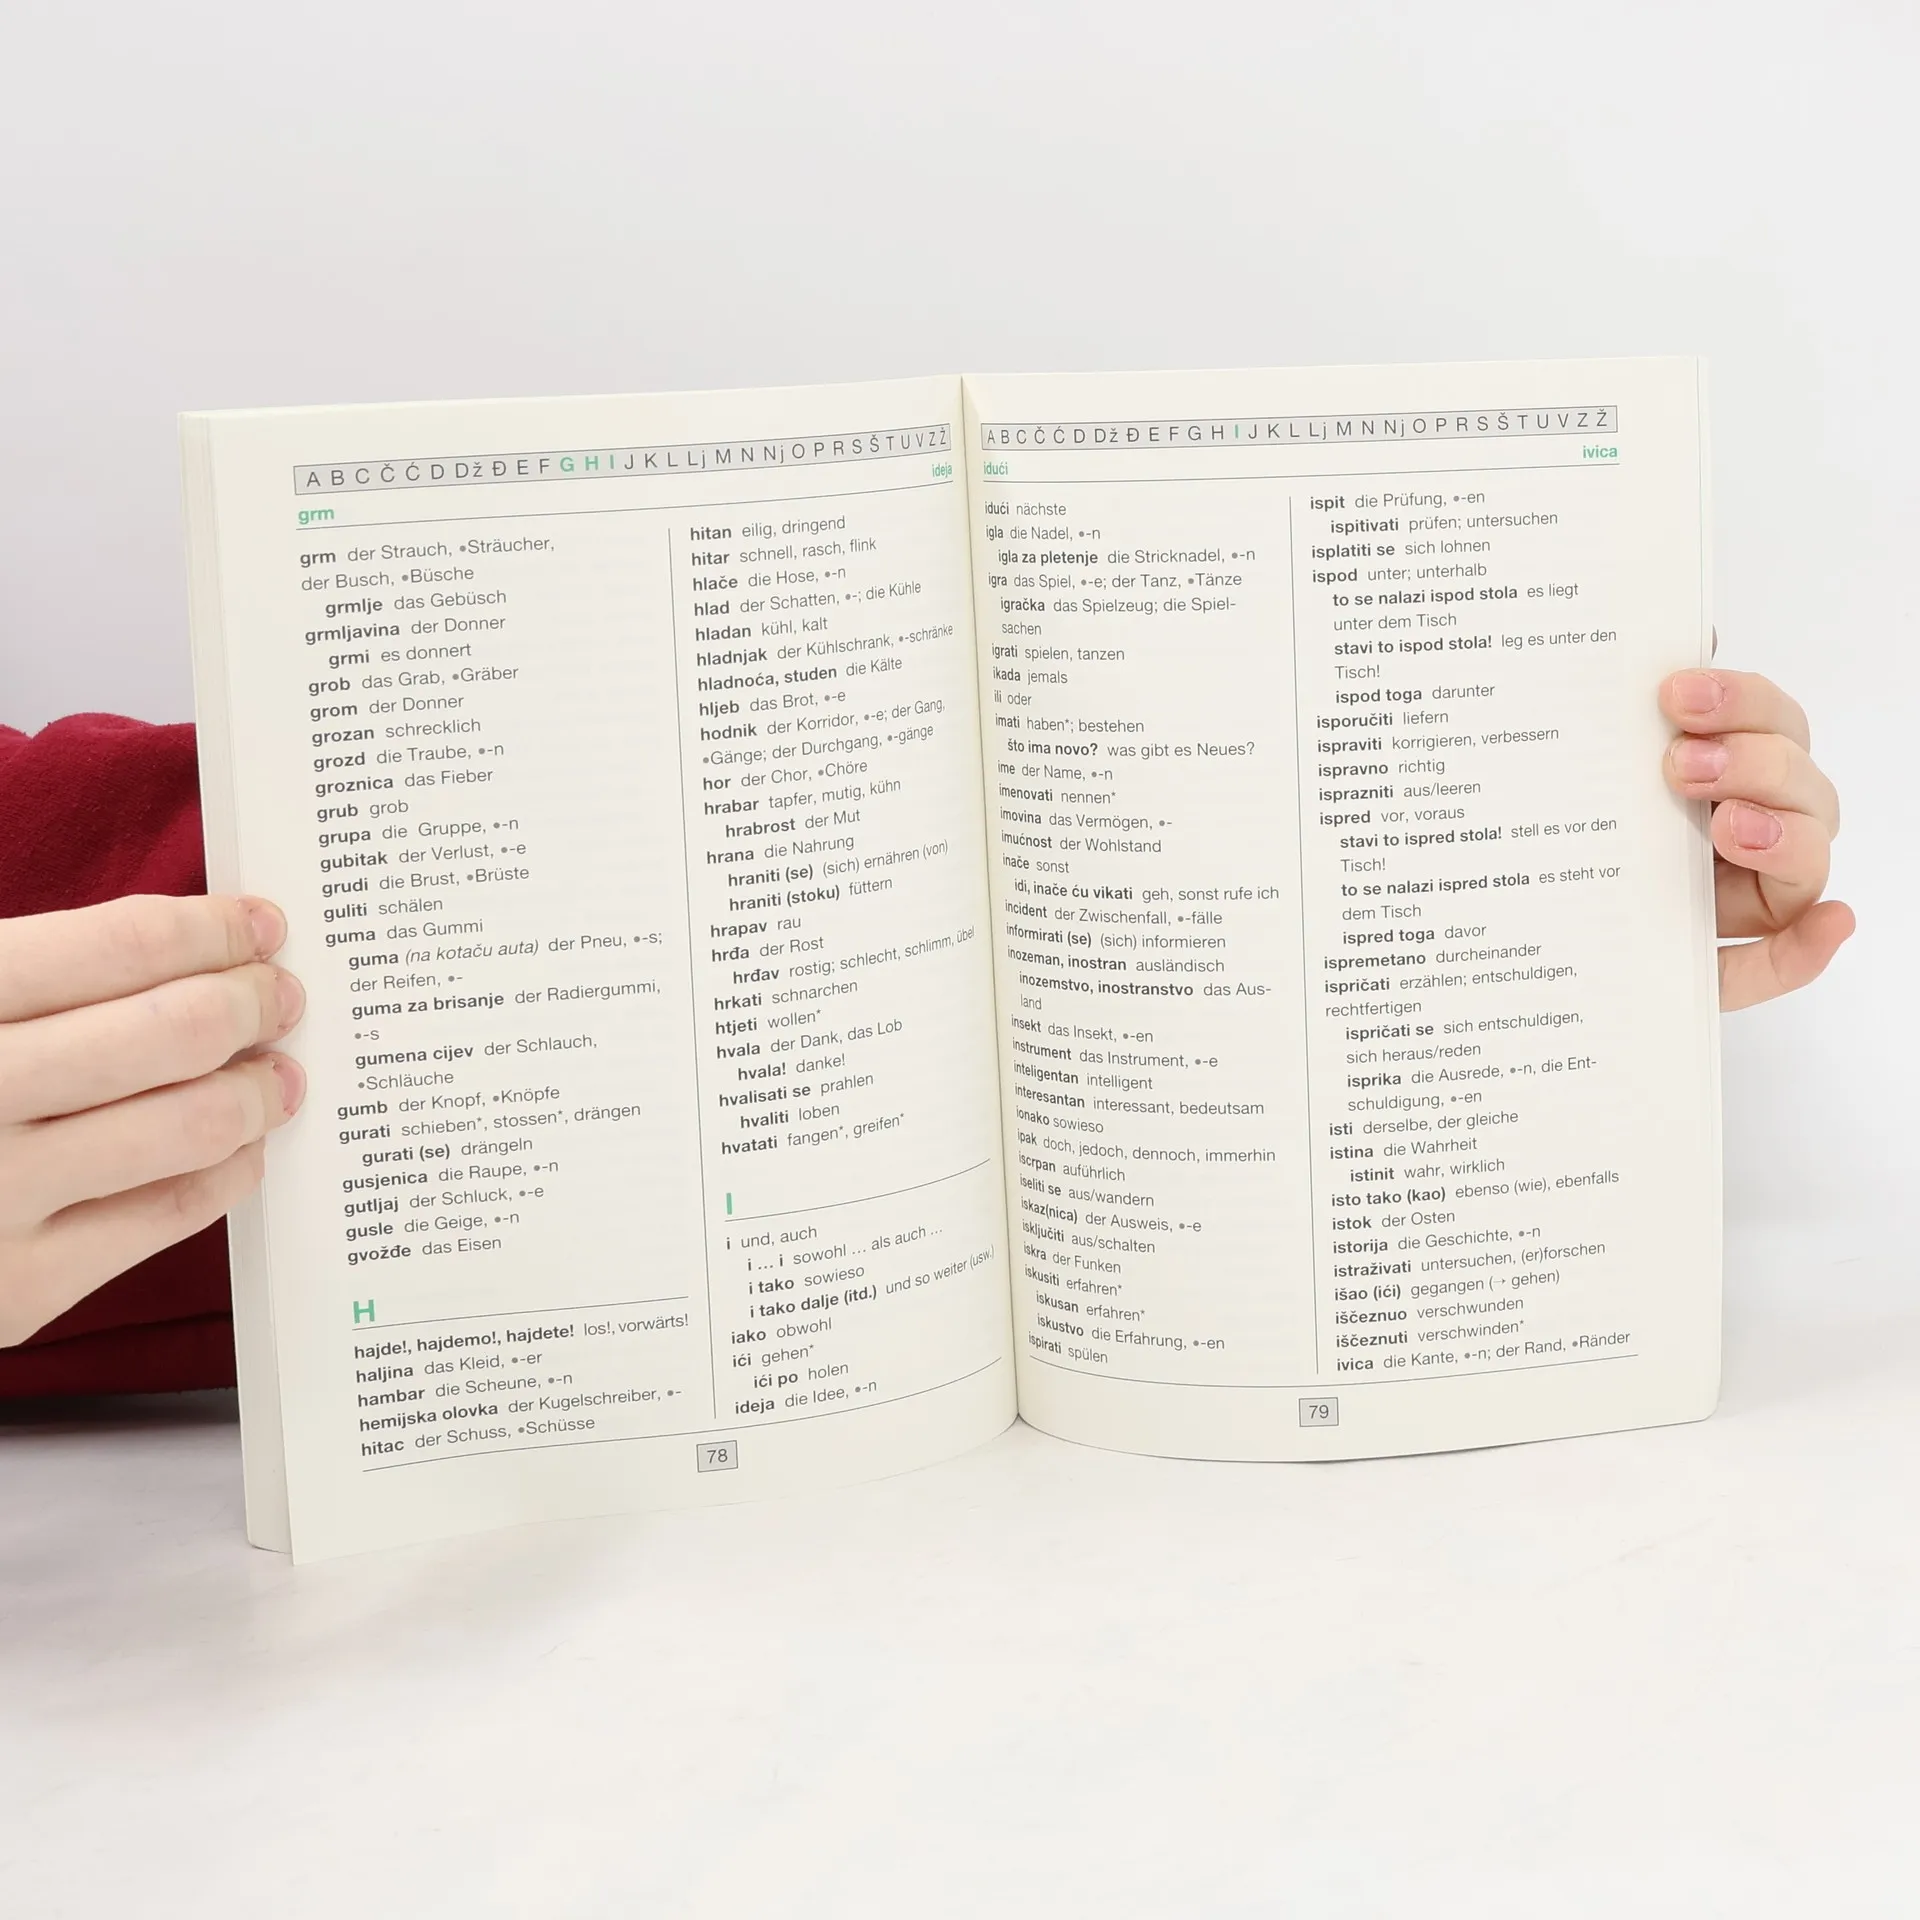 A B C Č Ć D Dž Đ E F G H I J K L Lj M N Nj O P R S Š T U V Z Ž
grm
ideja
grm der Strauch, •Sträucher,
der Busch, •Büsche
grmlje das Gebüsch
grmljavina der Donner
grmi es donnert
grob das Grab, •Gräber
grom der Donner
grozan schrecklich
grozd die Traube, •-n
groznica das Fieber
grub grob
grupa die Gruppe, •-n
gubitak der Verlust, •-e
grudi die Brust, •Brüste
guliti schälen
guma das Gummi
guma (na kotaču auta) der Pneu, •-s;
der Reifen, •-
guma za brisanje der Radiergummi,
•-s
gumena cijev der Schlauch,
•Schläuche
gumb der Knopf, •Knöpfe
gurati schieben*, stossen*, drängen
gurati (se) drängeln
gusjenica die Raupe, •-n
gutljaj der Schluck, •-e
gusle die Geige, •-n
gvožđe das Eisen
H
hajde!, hajdemo!, hajdete! los!, vorwärts!
haljina das Kleid, •-er
hambar die Scheune, •-n
hemijska olovka der Kugelschreiber, •-
hitac der Schuss, •Schüsse
hitan eilig, dringend
hitar schnell, rasch, flink
hlače die Hose, •-n
hlad der Schatten, •-; die Kühle
hladan kühl, kalt
hladnjak der Kühlschrank, •-schränke
hladnoća, studen die Kälte
hljeb das Brot, •-e
hodnik der Korridor, •-e; der Gang,
•Gänge; der Durchgang, •-gänge
hor der Chor, •Chöre
hrabar tapfer, mutig, kühn
hrabrost der Mut
hrana die Nahrung
hraniti (se) (sich) ernähren (von)
hraniti (stoku) füttern
hrapav rau
hrđa der Rost
hrđav rostig; schlecht, schlimm, übel
hrkati schnarchen
htjeti wollen*
hvala der Dank, das Lob
hvala! danke!
hvalisati se prahlen
hvaliti loben
hvatati fangen*, greifen*
I
i und, auch
i ... i sowohl ... als auch ...
i tako sowieso
i tako dalje (itd.) und so weiter (usw.)
iako obwohl
ići gehen*
ići po holen
ideja die Idee, •-n
78
A B C Č Ć D Dž Đ E F G H I J K L Lj M N Nj O P R S Š T U V Z Ž
idući
ivica
idući nächste
igla die Nadel, •-n
igla za pletenje die Stricknadel, •-n
igra das Spiel, •-e; der Tanz, •Tänze
igračka das Spielzeug; die Spiel-
sachen
igrati spielen, tanzen
ikada jemals
ili oder
imati haben*; bestehen
što ima novo? was gibt es Neues?
ime der Name, •-n
imenovati nennen*
imovina das Vermögen, •-
imućnost der Wohlstand
inače sonst
idi, inače ću vikati geh, sonst rufe ich
incident der Zwischenfall, •-fälle
informirati (se) (sich) informieren
inozeman, inostran ausländisch
inozemstvo, inostranstvo das Aus-
land
insekt das Insekt, •-en
instrument das Instrument, •-e
inteligentan intelligent
interesantan interessant, bedeutsam
ionako sowieso
ipak doch, jedoch, dennoch, immerhin
iscrpan auführlich
iseliti se aus/wandern
iskaz(nica) der Ausweis, •-e
isključiti aus/schalten
iskra der Funken
iskusiti erfahren*
iskusan erfahren*
iskustvo die Erfahrung, •-en
ispirati spülen
ispit die Prüfung, •-en
ispitivati prüfen; untersuchen
isplatiti se sich lohnen
ispod unter; unterhalb
to se nalazi ispod stola es liegt
unter dem Tisch
stavi to ispod stola! leg es unter den
Tisch!
ispod toga darunter
isporučiti liefern
ispraviti korrigieren, verbessern
ispravno richtig
isprazniti aus/leeren
ispred vor, voraus
stavi to ispred stola! stell es vor den
Tisch!
to se nalazi ispred stola es steht vor
dem Tisch
ispred toga davor
ispremetano durcheinander
ispričati erzählen; entschuldigen,
rechtfertigen
ispričati se sich entschuldigen,
sich heraus/reden
isprika die Ausrede, •-n, die Ent-
schuldigung, •-en
isti derselbe, der gleiche
istina die Wahrheit
istinit wahr, wirklich
isto tako (kao) ebenso (wie), ebenfalls
istok der Osten
istorija die Geschichte, •-n
istraživati untersuchen, (er)forschen
išao (ići) gegangen (→ gehen)
iščeznuo verschwunden
iščeznuti verschwinden*
ivica die Kante, •-n; der Rand, •Ränder
79